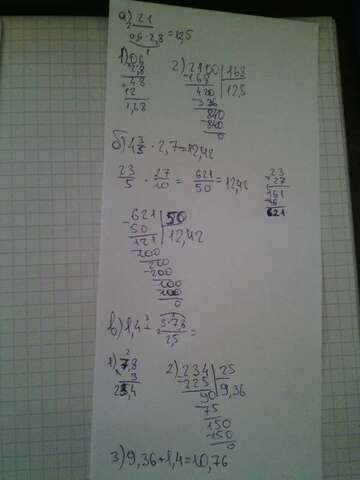 а) 21
0,6 · 2,8 = 12,5
1) 0,6
2,8
48
12
1,68
2) 2100 | 168
168 | 12,5
420
336
840
840
0
б) 4 3/5 · 2,7 = 12,42
23/5 · 27/10 = 621/50 = 12,42
23
27
161
46
621
621 | 50
50 | 12,42
121
100
210
200
100
100
0
в) 1,4 + 3·7,8/2,5 =
1) 7,8
3
23,4
2) 234 | 25
225 | 9,36
90
75
150
150
0
3) 9,36 + 1,4 = 10,76